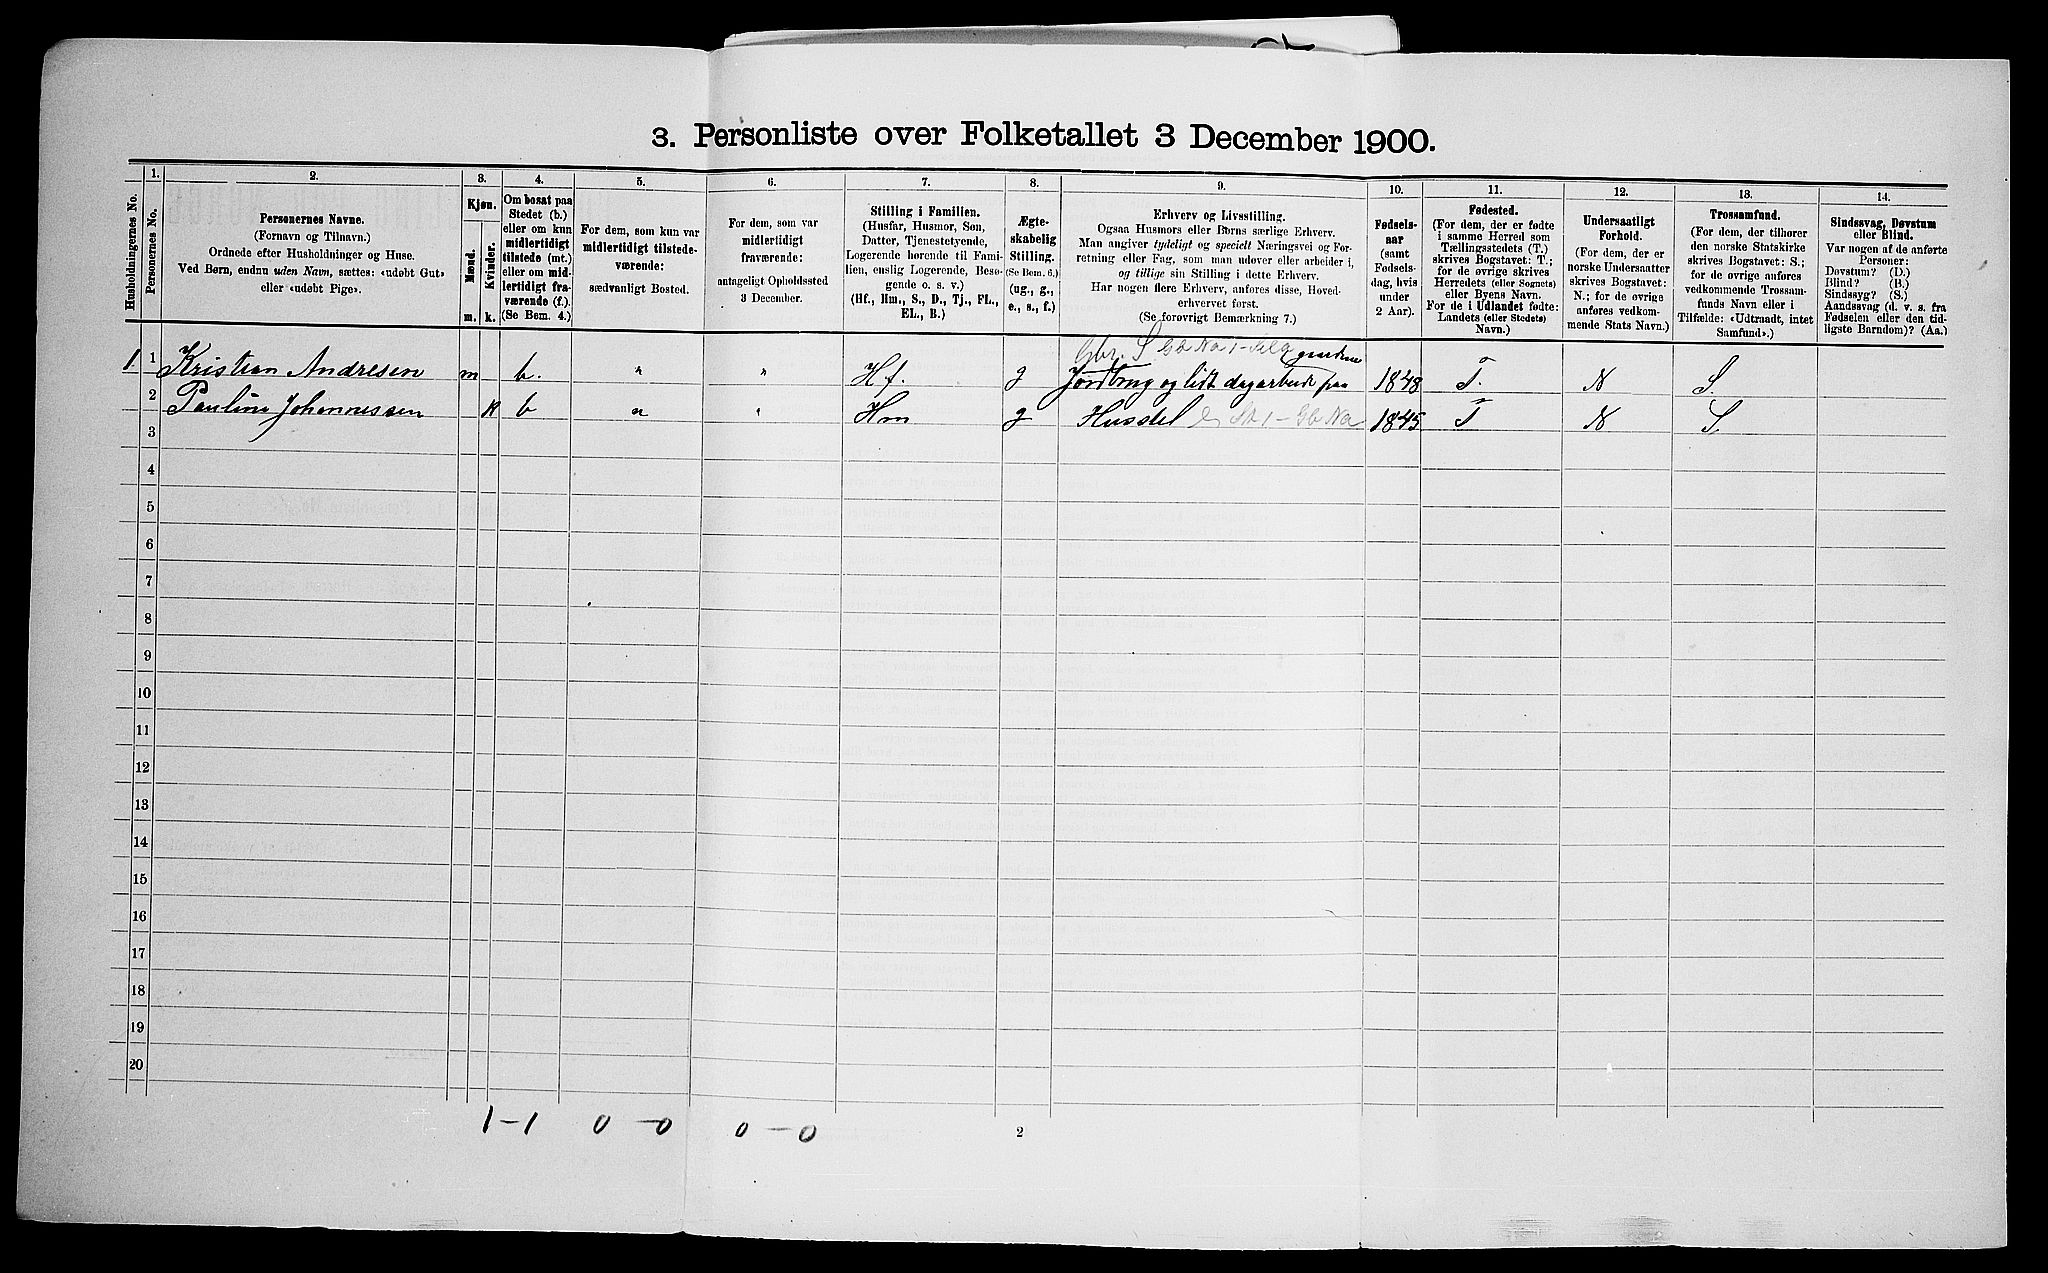 3. Personliste over Folketallet 3 December 1900.
Husholdningernes No.
1.
Personernes No.
2.
Personernes Navne.
(Fornavn og Tilnavn.)
Ordnede efter Husholdninger og Huse.
Ved Børn, endnu uden Navn, sættes: «udøbt Gut»
eller «udøbt Pige».
3.
Kjøn.
Mænd.
Kvinder.
m. k.
4.
Om bosat paa
Stedet (b.)
eller om kun
midlertidigt
tilstede (mt.)
eller om mid-
lertidigt fra-
værende (f.).
(Se Bem. 4.)
5.
For dem, som kun var
midlertidigt tilstede-
værende:
sædvanligt Bosted.
6.
For dem, som var
midlertidigt
fraværende:
antageligt Opholdssted
3 December.
7.
Stilling i Familien.
(Husfar, Husmor, Søn,
Datter, Tjenestetyende,
Logerende hørende til Fami-
lien, enslig Logerende, Besø-
gende o. s. v.)
(Hf., Hm., S., D., Tj., FL.,
EL., B.)
8.
Ægte-
skabelig
Stilling.
(Se Bem. 6.)
(ug., g.,
e., s., f.)
9.
Erhverv og Livsstilling.
Ogsaa Husmors eller Børns særlige Erhverv.
Man angiver tydeligt og specielt Næringsvei og For-
retning eller Fag, som man udøver eller arbeider i,
og tillige sin Stilling i dette Erhverv.
Har nogen flere Erhverv, anføres disse, Hoved-
erhvervet først.
(Se forøvrigt Bemærkning 7.)
10.
Fødsels-
aar
(samt
Fødsels-
dag, hvis
under
2 Aar).
11.
Fødested.
(For dem, der er fødte
i samme Herred som
Tællingsstedets (T.)
skrives Bogstavet: T.;
for de øvrige skrives
Herredets (eller Sognets)
eller Byens Navn.
For de i Udlandet fødte:
Landets (eller Stedets)
Navn.)
12.
Undersaatligt
Forhold.
(For dem, der er
norske Undersaatter
skrives Bogstavet:
N.; for de øvrige
anføres vedkom-
mende Stats Navn.)
13.
Trossamfund.
(For dem, der tilhører
den norske Statskirke
skrives Bogstavet: S.;
for de øvrige anføres
vedkommende Trossam-
funds Navn eller i
Tilfælde: «Udtraadt, intet
Samfund».)
14.
Sindssvag, Døvstum
eller Blind.
Var nogen af de anførte
Personer:
Døvstum? (D.)
Blind? (B.)
Sindssyg? (S.)
Aandssvag (d. v. s. fra
Fødselen eller den tid-
ligste Barndom)? (Aa.)
Gbr. S gaardene
1. 1 Kristian Andresen m b. " " Hf. g Jordbrug og lidt dagarbeide paa 1848 T. N S.
2 Pauline Johannessen k b " " Hm g Husstel 1845 T N S.
3
4
5
6
7
8
9
10
11
12
13
14
15
16
17
18
19
20
1-1 0-0 0-0
2